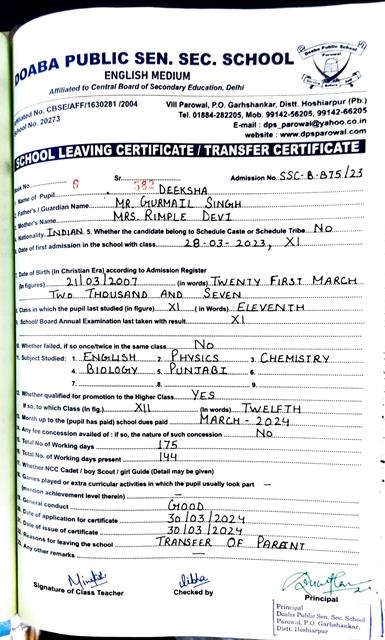 DOABA PUBLIC SEN. SEC. SCHOOL
ENGLISH MEDIUM
Affiliated to Central Board of Secondary Education, Delhi
Doaba Public School
Parowal
Affiliated No. CBSE/AFF/1630281 /2004
School No. 20273
Vill Parowal, P.O. Garhshankar, Distt. Hoshiarpur (Pb.)
Tel. 01884-282205, Mob. 99142-56205, 99142-66205
E-mail : dps_parowal@yahoo.co.in
website : www.dpsparowal.com
SCHOOL LEAVING CERTIFICATE / TRANSFER CERTIFICATE
Book No. 6 Sr. 382 Admission No. SSC-B-875/23
Name of Pupil DEEKSHA
Father's / Guardian Name MR. GURMAIL SINGH
Mother's Name MRS. RIMPLE DEVI
Nationality INDIAN 5. Whether the candidate belong to Schedule Caste or Schedule Tribe NO
Date of first admission in the school with class 28-03-2023, XI
Date of Birth (In Christian Era) according to Admission Register
(In figures) 21/03/2007 (in words) TWENTY FIRST MARCH
TWO THOUSAND AND SEVEN
Class in which the pupil last studied (in figure) XI ( in Words) ELEVENTH
School/ Board Annual Examination last taken with result XI
10. Whether failed, if so once/twice in the same class NO
11. Subject Studied : 1. ENGLISH 2. PHYSICS 3. CHEMISTRY
4. BIOLOGY 5. PUNJABI 6.
7. 8. 9.
12. Whether qualified for promotion to the Higher Class YES
If so, to which Class (In fig.) XII (In words) TWELFTH
13. Month up to the (pupil has paid) school dues paid MARCH - 2024
Any fee concession availed of : if so, the nature of such concession NO
Total No of Working days 175
Total No. of Working days present 144
Whether NCC Cadet / boy Scout / girl Guide (Detail may be given)
Games played or extra curricular activities in which the pupil usually look part —
(mention achievement level therein) —
General conduct GOOD
Date of application for certificate 30/03/2024
Date of issue of certificate 30/03/2024
Reasons for leaving the school TRANSFER OF PARENT
Any other remarks —
Signature of Class Teacher
Checked by
Principal
Principal
Doaba Public Sen. Sec. School,
Parowal, P.O. Garhshankar,
Distt. Hoshiarpur